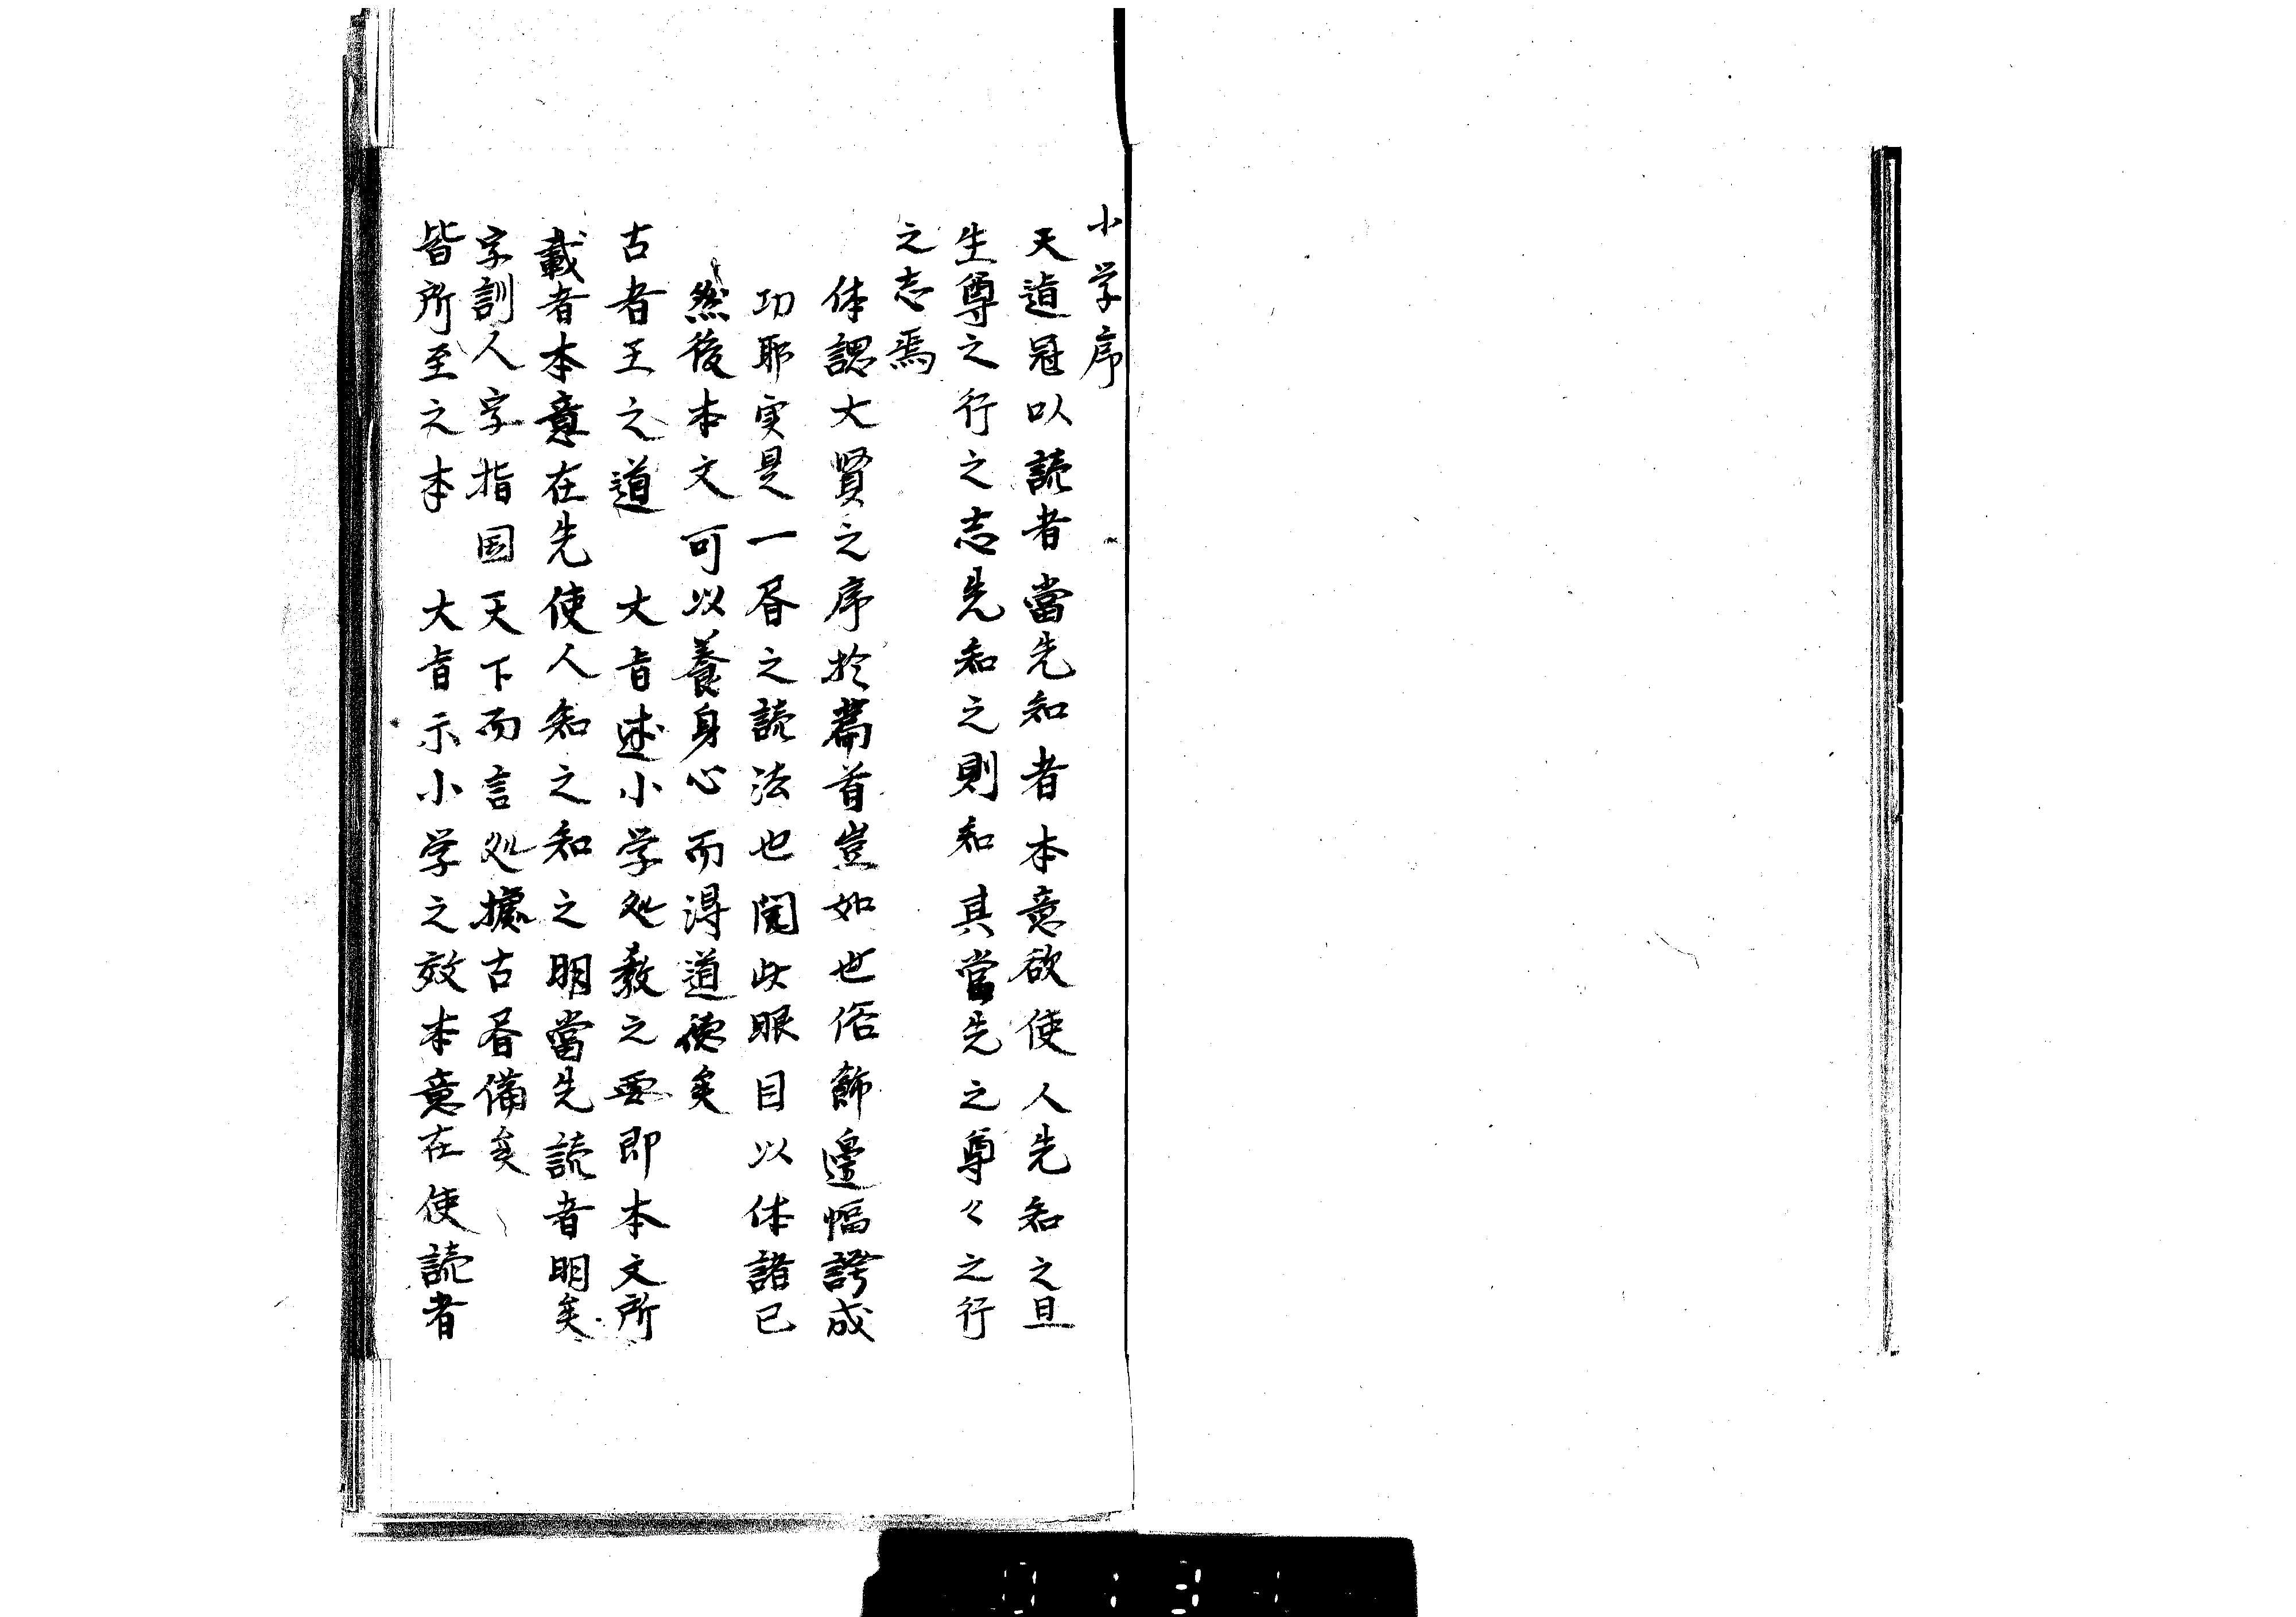 小学序
天道冠以読者當先知者本意欲使人先知之且
生尊之行之志先知之則知其當先之尊々之行
之志焉
体認大賢之序於篇首豈如世俗飾邊幅誇成
功耶実是一㫺之読法也開此眼目以体諸已
然後本文可以養身心而得道德矣
古者王之道　大旨述小学処教之要即本文所
載者本意在先使人知之知之明當先読者明矣
字訓人字指国天下而言処據古㫺備矣
皆所至之本　大旨示小学之效本意在使読者